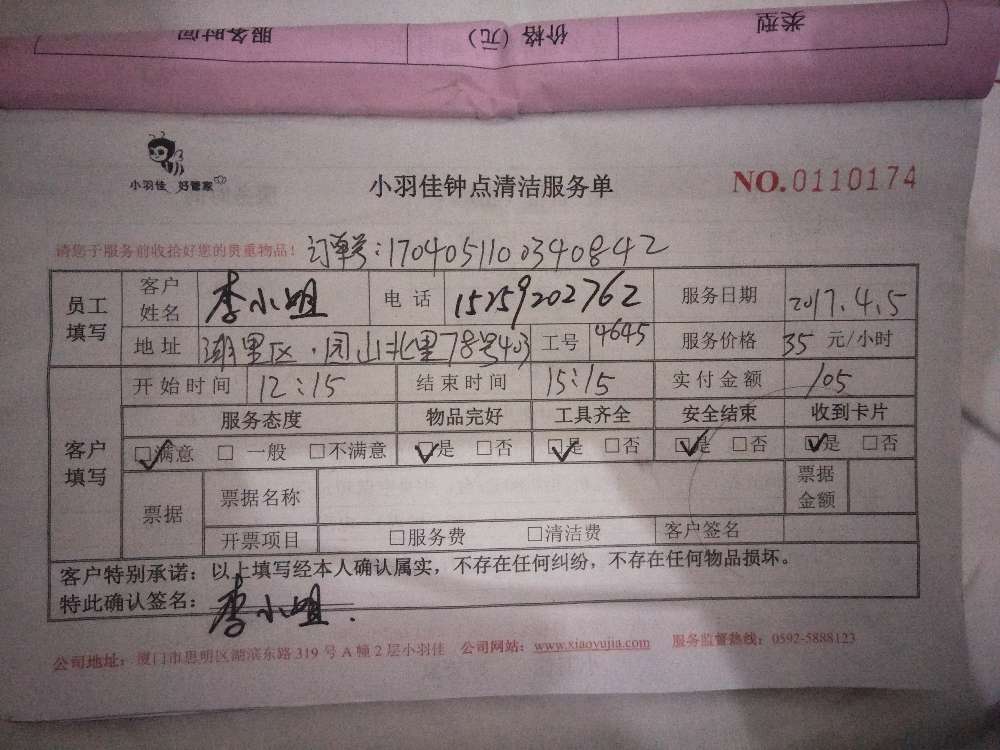 类型 价格（元） 服务时间
小羽佳 好管家
小羽佳钟点清洁服务单 NO.0110174
请您于服务前收拾好您的贵重物品！ 订单号：1704051100340842
员工填写 客户姓名 李小姐 电话 15259202762 服务日期 2017.4.5
地址 湖里区·园山北里78号403 工号 4645 服务价格 35 元/小时
客户填写 开始时间 12:15 结束时间 15:15 实付金额 105
服务态度 物品完好 工具齐全 安全结束 收到卡片
☑满意 □一般 □不满意 ☑是 □否 ☑是 □否 ☑是 □否 ☑是 □否
票据 票据名称 票据金额
开票项目 □服务费 □清洁费 客户签名
客户特别承诺：以上填写经本人确认属实，不存在任何纠纷，不存在任何物品损坏。
特此确认签名：李小姐.
公司地址：厦门市思明区湖滨东路319号A幢2层小羽佳 公司网站：www.xiaoyujia.com 服务监督热线：0592-5888123